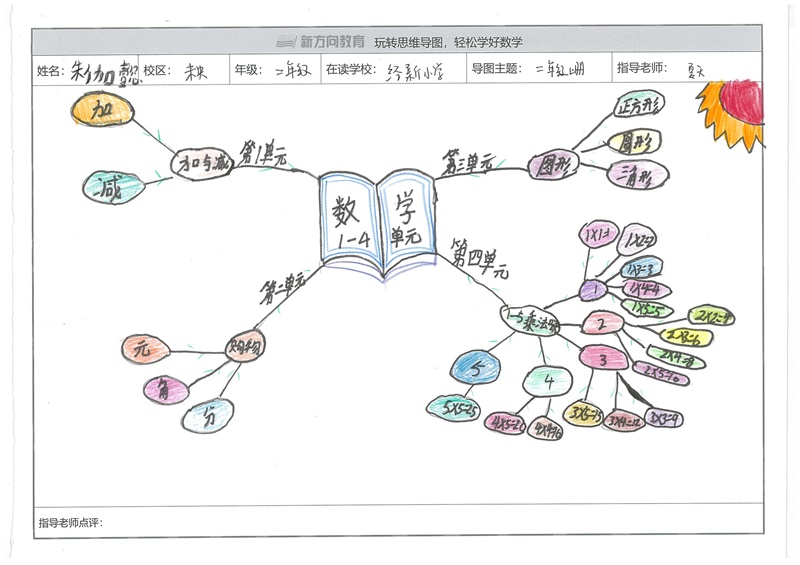 新方向教育 玩转思维导图，轻松学好数学
姓名：朱伽懿 校区：未央 年级：二年级 在读学校：经新小学 导图主题：二年级上册 指导老师：夏天
数学
1-4单元
第1单元
加与减
加
减
第二单元
购物
元
角
分
第三单元
图形
正方形
圆形
三角形
第四单元
1-5乘法
1
1×1=1
1×2=2
1×3=3
1×4=4
1×5=5
2
2×2=4
2×3=6
2×4=8
2×5=10
3
3×3=9
3×4=12
3×5=15
4
4×4=16
4×5=20
5
5×5=25
指导老师点评：